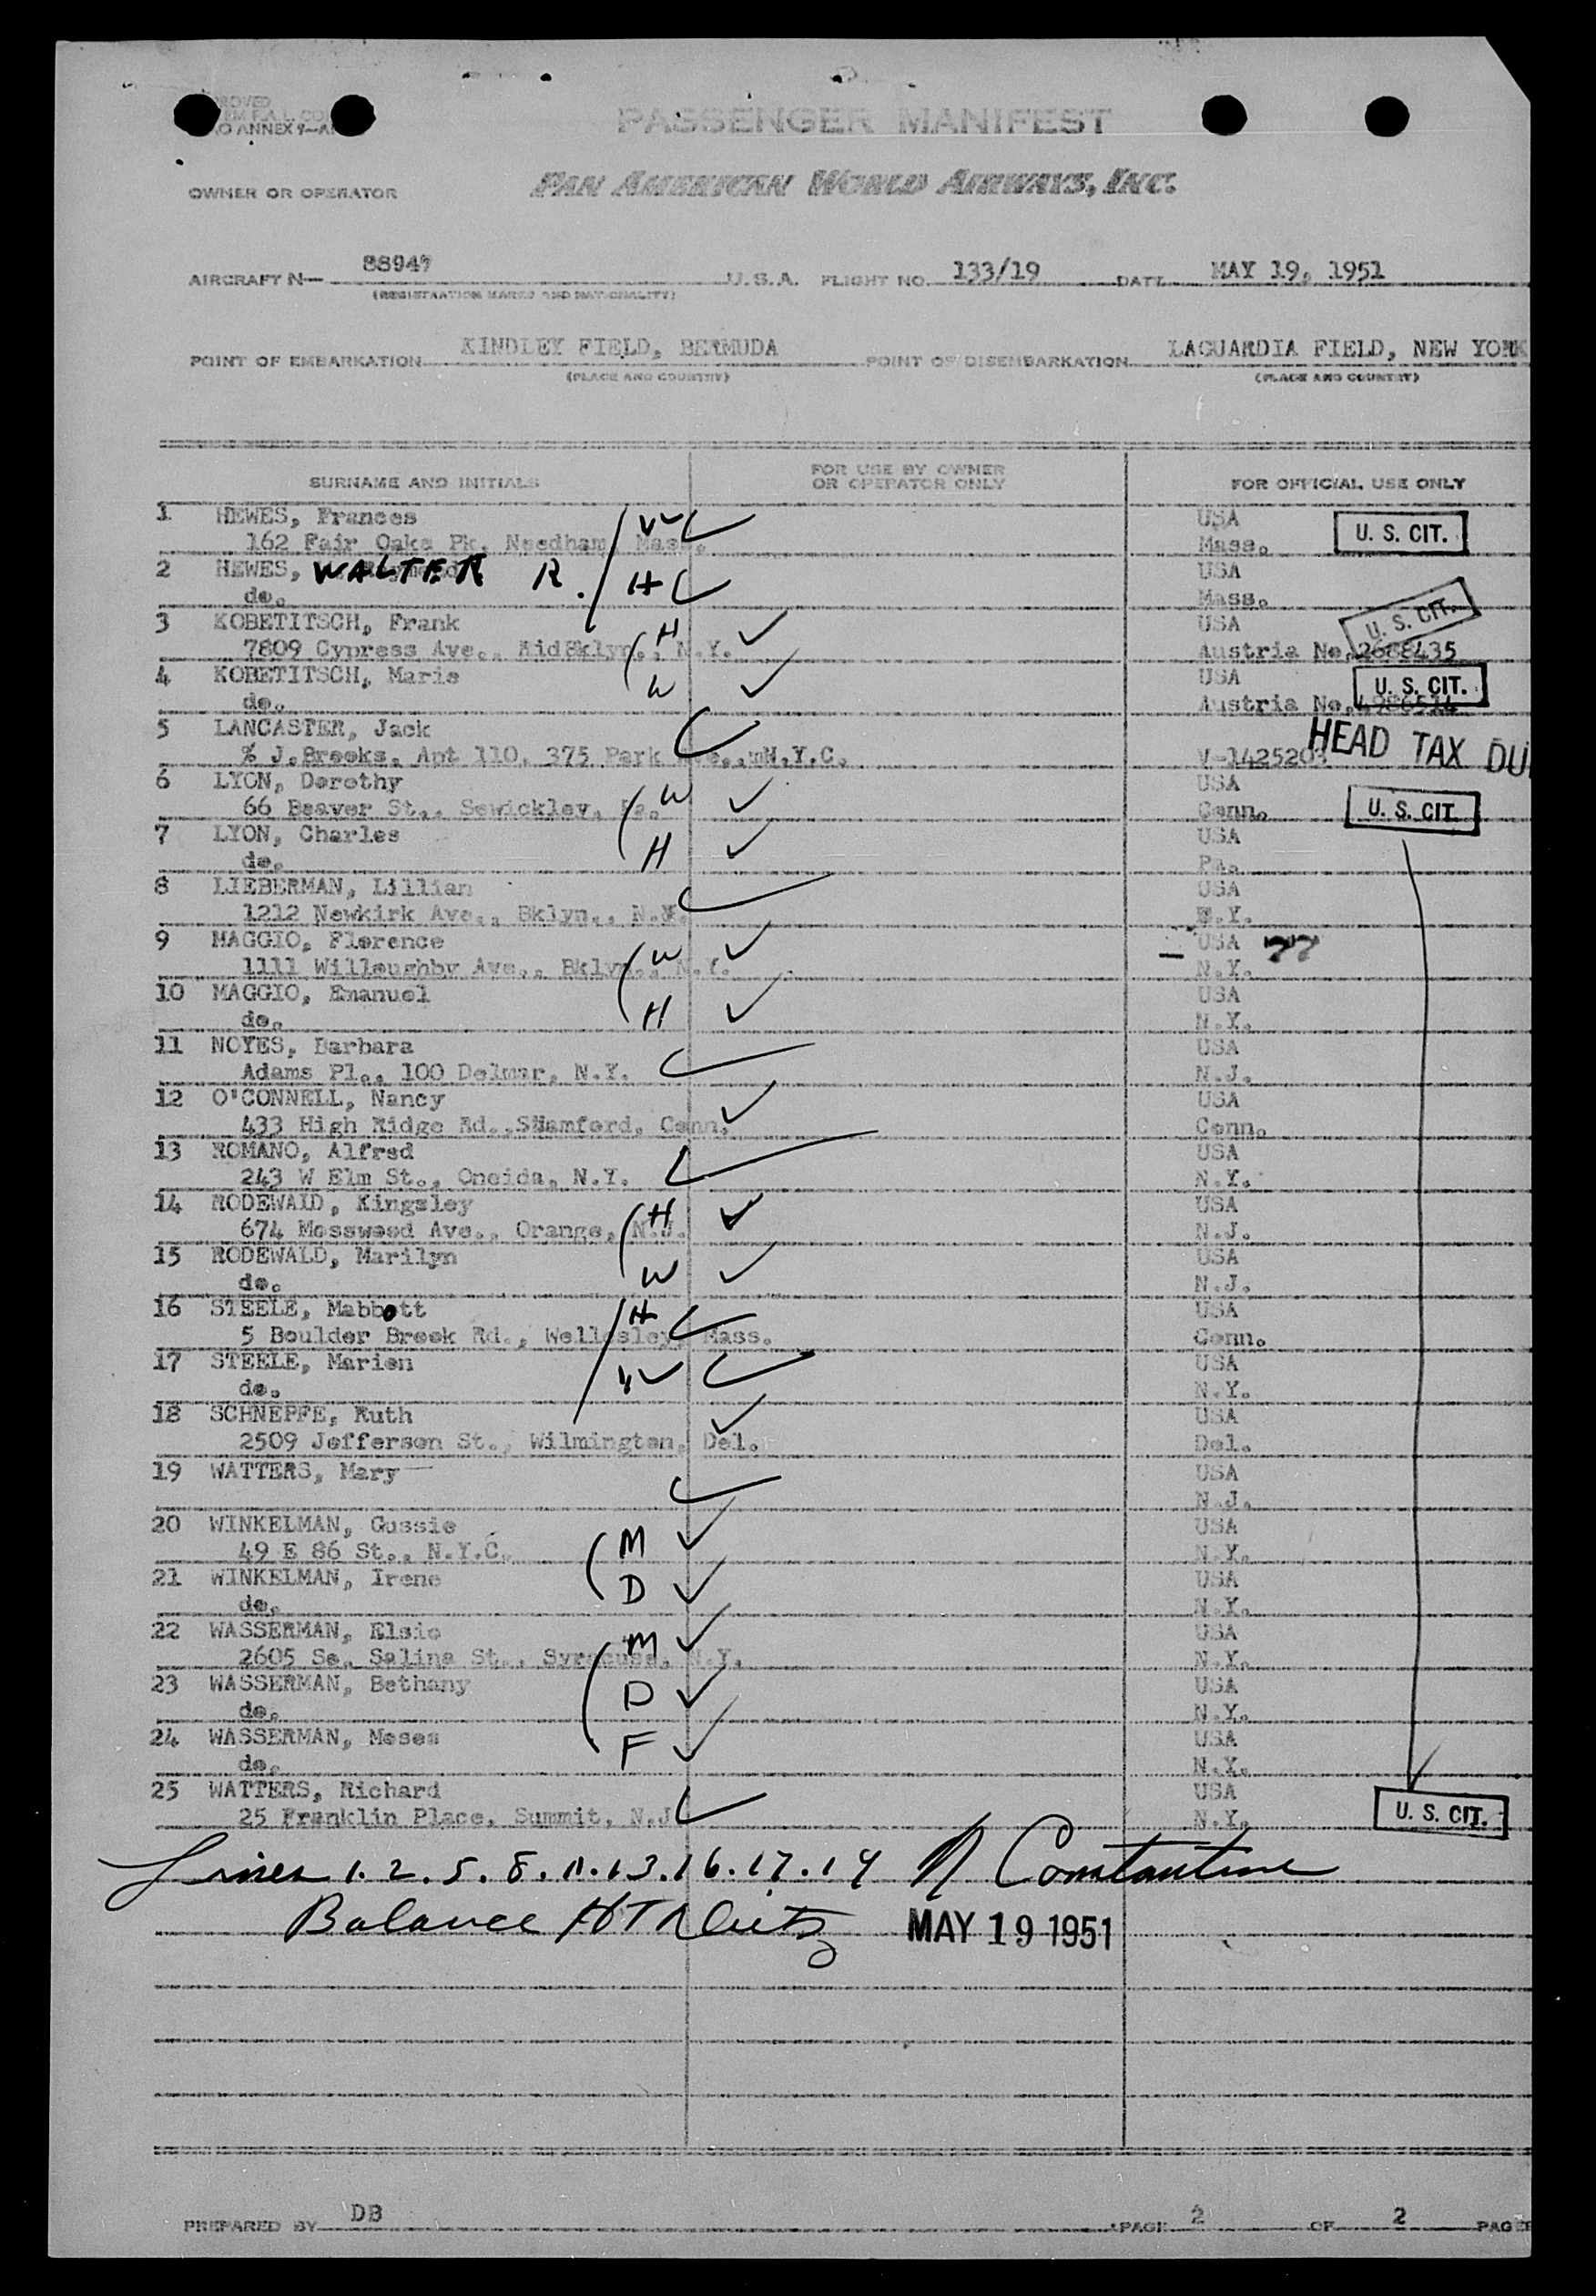 PASSENGER MANIFEST
ANNEX 9
OWNER OR OPERATOR PAN AMERICAN WORLD AIRWAYS, INC.
AIRCRAFT N— 88947 U.S.A. FLIGHT NO. 133/19 DATE MAY 19, 1951
(REGISTRATION MARKS AND NATIONALITY)
POINT OF EMBARKATION KINDLEY FIELD, BERMUDA POINT OF DISEMBARKATION LAGUARDIA FIELD, NEW YORK
(PLACE AND COUNTRY) (PLACE AND COUNTRY)
SURNAME AND INITIALS FOR USE BY OWNER OR OPERATOR ONLY FOR OFFICIAL USE ONLY
1 HEWES, Frances W USA U. S. CIT.
162 Fair Oaks Pk, Needham, Mass. Mass.
2 HEWES, WALTER R. H USA
do. Mass.
3 KOBETITSCH, Frank H USA U. S. CIT.
7809 Cypress Ave., MidBklyn., N.Y. Austria No. 2688435
4 KOBETITSCH, Marie W USA U. S. CIT.
do. Austria No.
5 LANCASTER, Jack HEAD TAX DU
% J.Brooks, Apt 110, 375 Park Ave., N.Y.C. V-1425203
6 LYON, Dorothy W USA
66 Beaver St., Sewickley, Pa. Conn. U. S. CIT.
7 LYON, Charles H USA
do. Pa.
8 LIEBERMAN, Lillian USA
1212 Newkirk Ave., Bklyn., N.Y. N.Y.
9 MAGGIO, Florence W USA
1111 Willoughby Ave., Bklyn., N.Y. N.Y.
10 MAGGIO, Emanuel H USA
do. N.Y.
11 NOYES, Barbara USA
Adams Pl., 100 Delmar, N.Y. N.J.
12 O'CONNELL, Nancy USA
433 High Ridge Rd.,Stamford, Conn. Conn.
13 ROMANO, Alfred USA
243 W Elm St., Oneida, N.Y. N.Y.
14 RODEWALD, Kingsley H USA
674 Mosswood Ave., Orange, N.J. N.J.
15 RODEWALD, Marilyn W USA
do. N.J.
16 STEELE, Mabbott H USA
5 Boulder Brook Rd., Wellesley, Mass. Conn.
17 STEELE, Marion W USA
do. N.Y.
18 SCHNEPFE, Ruth USA
2509 Jefferson St., Wilmington, Del. Del.
19 WATTERS, Mary USA
N.J.
20 WINKELMAN, Gussie M USA
49 E 86 St., N.Y.C. N.Y.
21 WINKELMAN, Irene D USA
do. N.Y.
22 WASSERMAN, Elsie M USA
2605 So. Salina St., Syracuse, N.Y. N.Y.
23 WASSERMAN, Bethany D USA
do. N.Y.
24 WASSERMAN, Moses F USA
do. N.Y.
25 WATTERS, Richard USA
25 Franklin Place, Summit, N.J. N.Y. U. S. CIT.
Lines 1. 2. 5. 8. 11. 13. 16. 17. 19 N Constantine
Balance MAY 19 1951
PREPARED BY DB PAGE 2 OF 2 PAGE